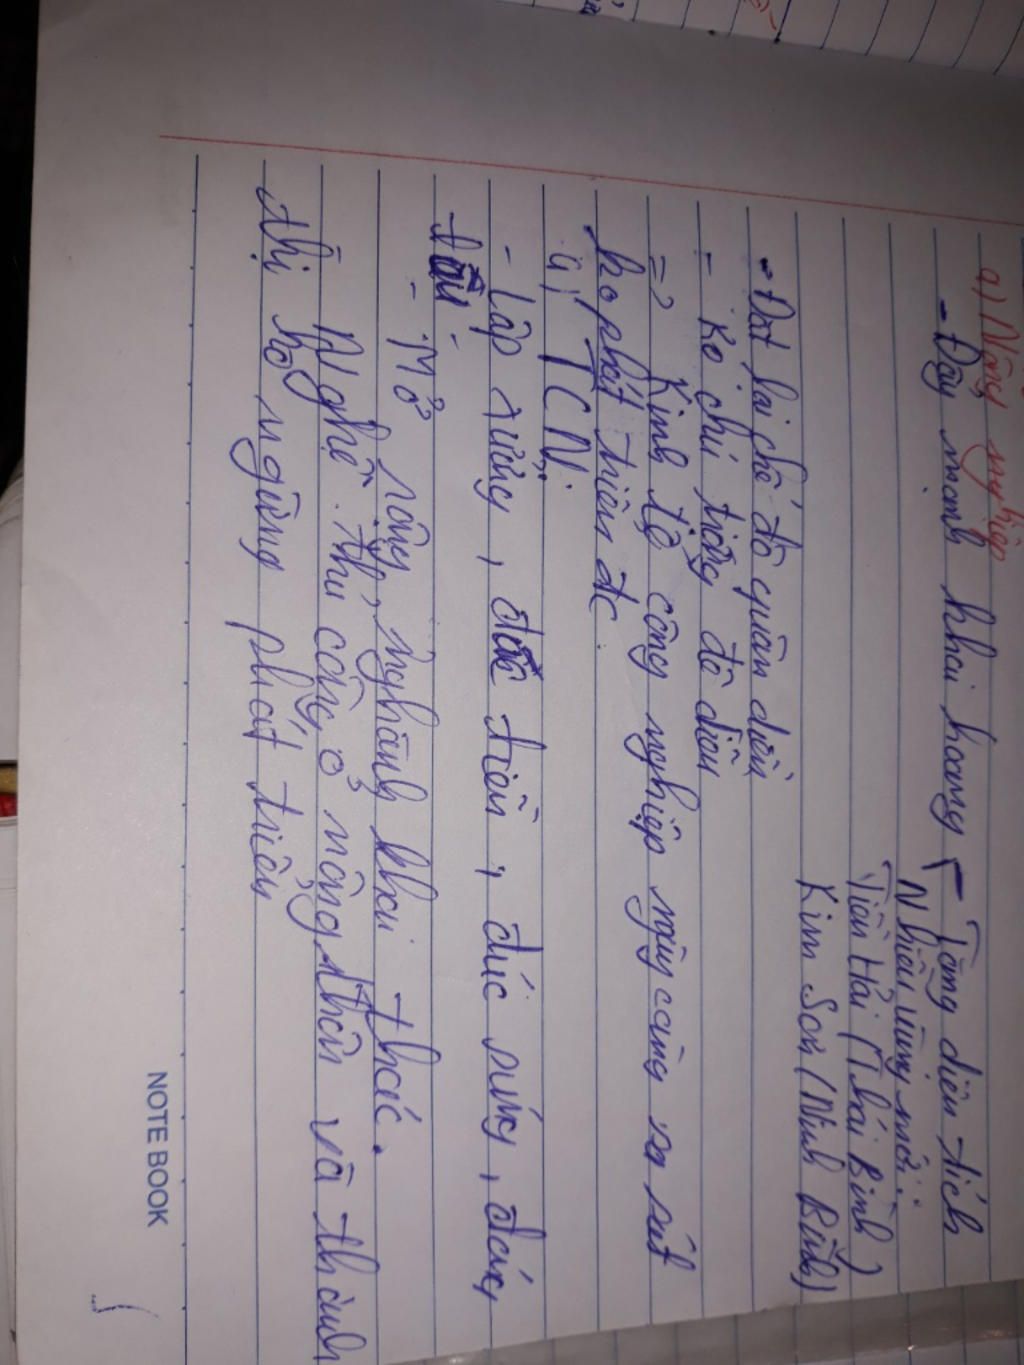 a) Nông nghiệp
- Đẩy mạnh khai hoang - Tăng diện tích
Nhiều vùng mới:
Tiền Hải (Thái Bình)
Kim Sơn (Ninh Bình)
- Đặt lại chế độ quân điền
- Ko chú trọng đê điều
=> Kinh tế công nghiệp ngày càng sa sút
ko phát triển đc.
TCN:
- Lập xưởng, đúc tiền, đúc súng, đóng
tàu.
- Mở rộng nghành khai thác.
Nghề thủ công ở nông thôn và thành
thị ko ngừng phát triển
NOTE BOOK